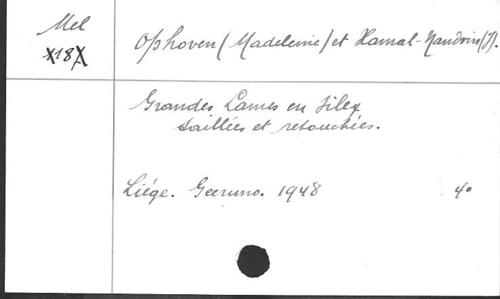 Mel
X18X
Ophoven (Madeleine) et Hamal-Nandrin (J).
Grandes Lames en silex
taillées et retouchées.
Liége. Geeruno. 1948 4°